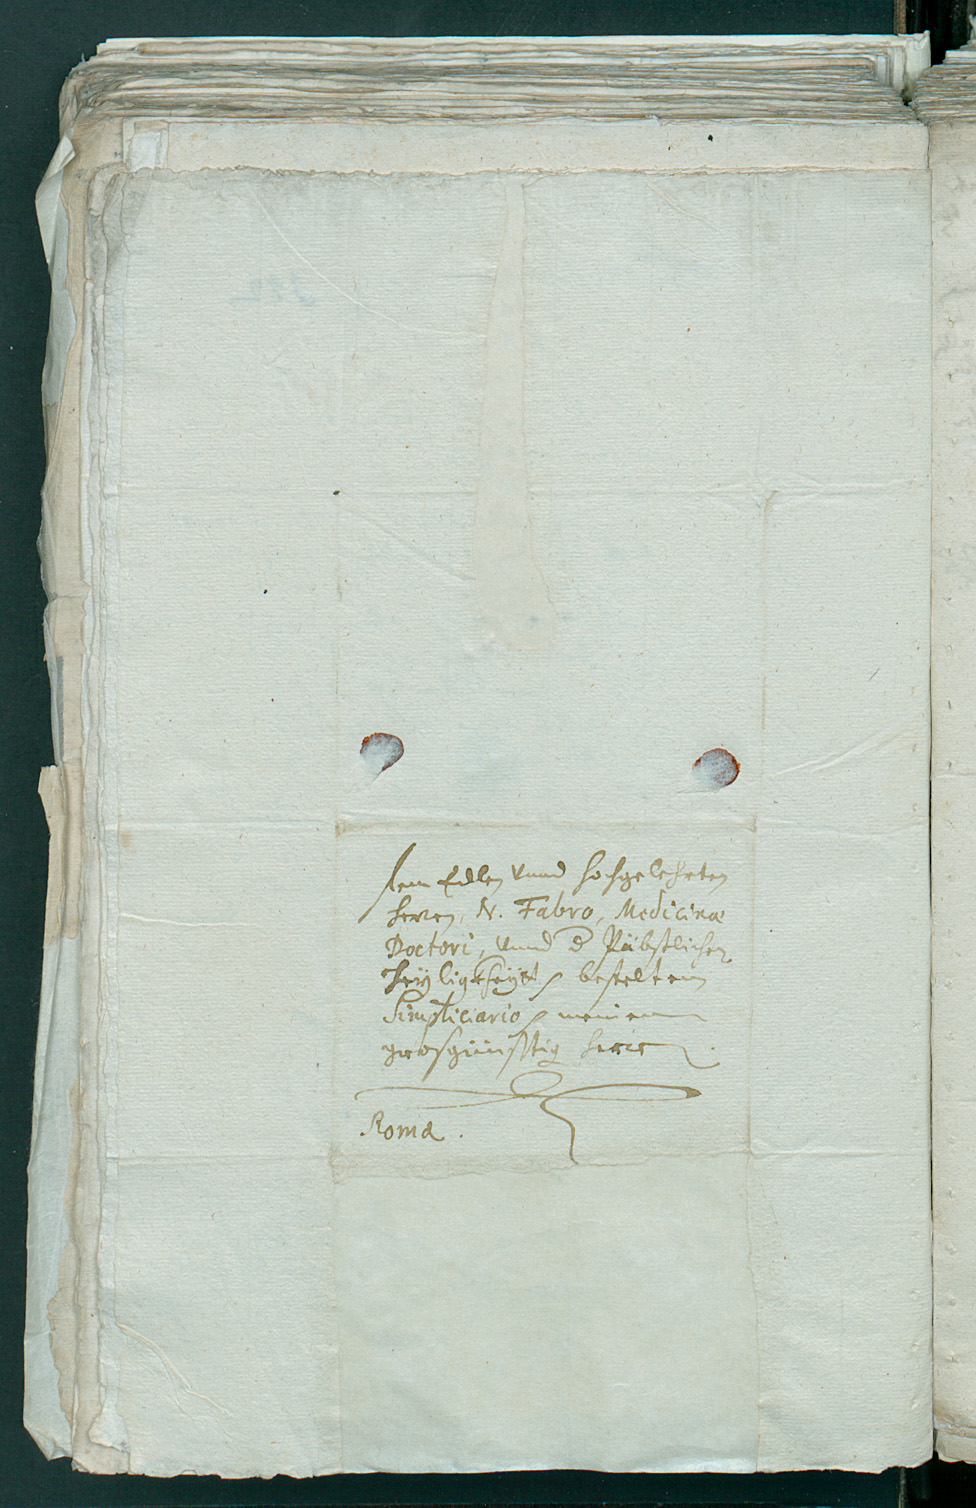 Dem Edlen vnnd hochgelehrten
Herren, N. Fabro, Medicinæ
Doctori, vnnd d Päbstlichen
Heÿligkheÿt / besteltem
Simpliciario / meinem
grosgünstig Herrn.
Roma.